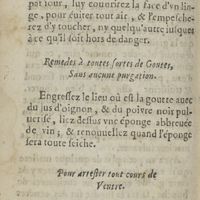 par tout, luy couurirez la face d'vn lin-
ge, pour éuiter tout air, & l'empesche-
rez d'y toucher, ny quelqu'autre iusques
à ce qu'il soit hors de danger.
Remedes à toutes sortes de Goutes,
Sans aucune purgation.
Engressez le lieu où est la goutte auec
du jus d'oignon, & du poivre noir pul-
uerisé, liez dessus vne éponge abbreuée
de vin, & renouuellez quand l'éponge
sera toute seiche.
Pour arrester tout cours de
Ventre.